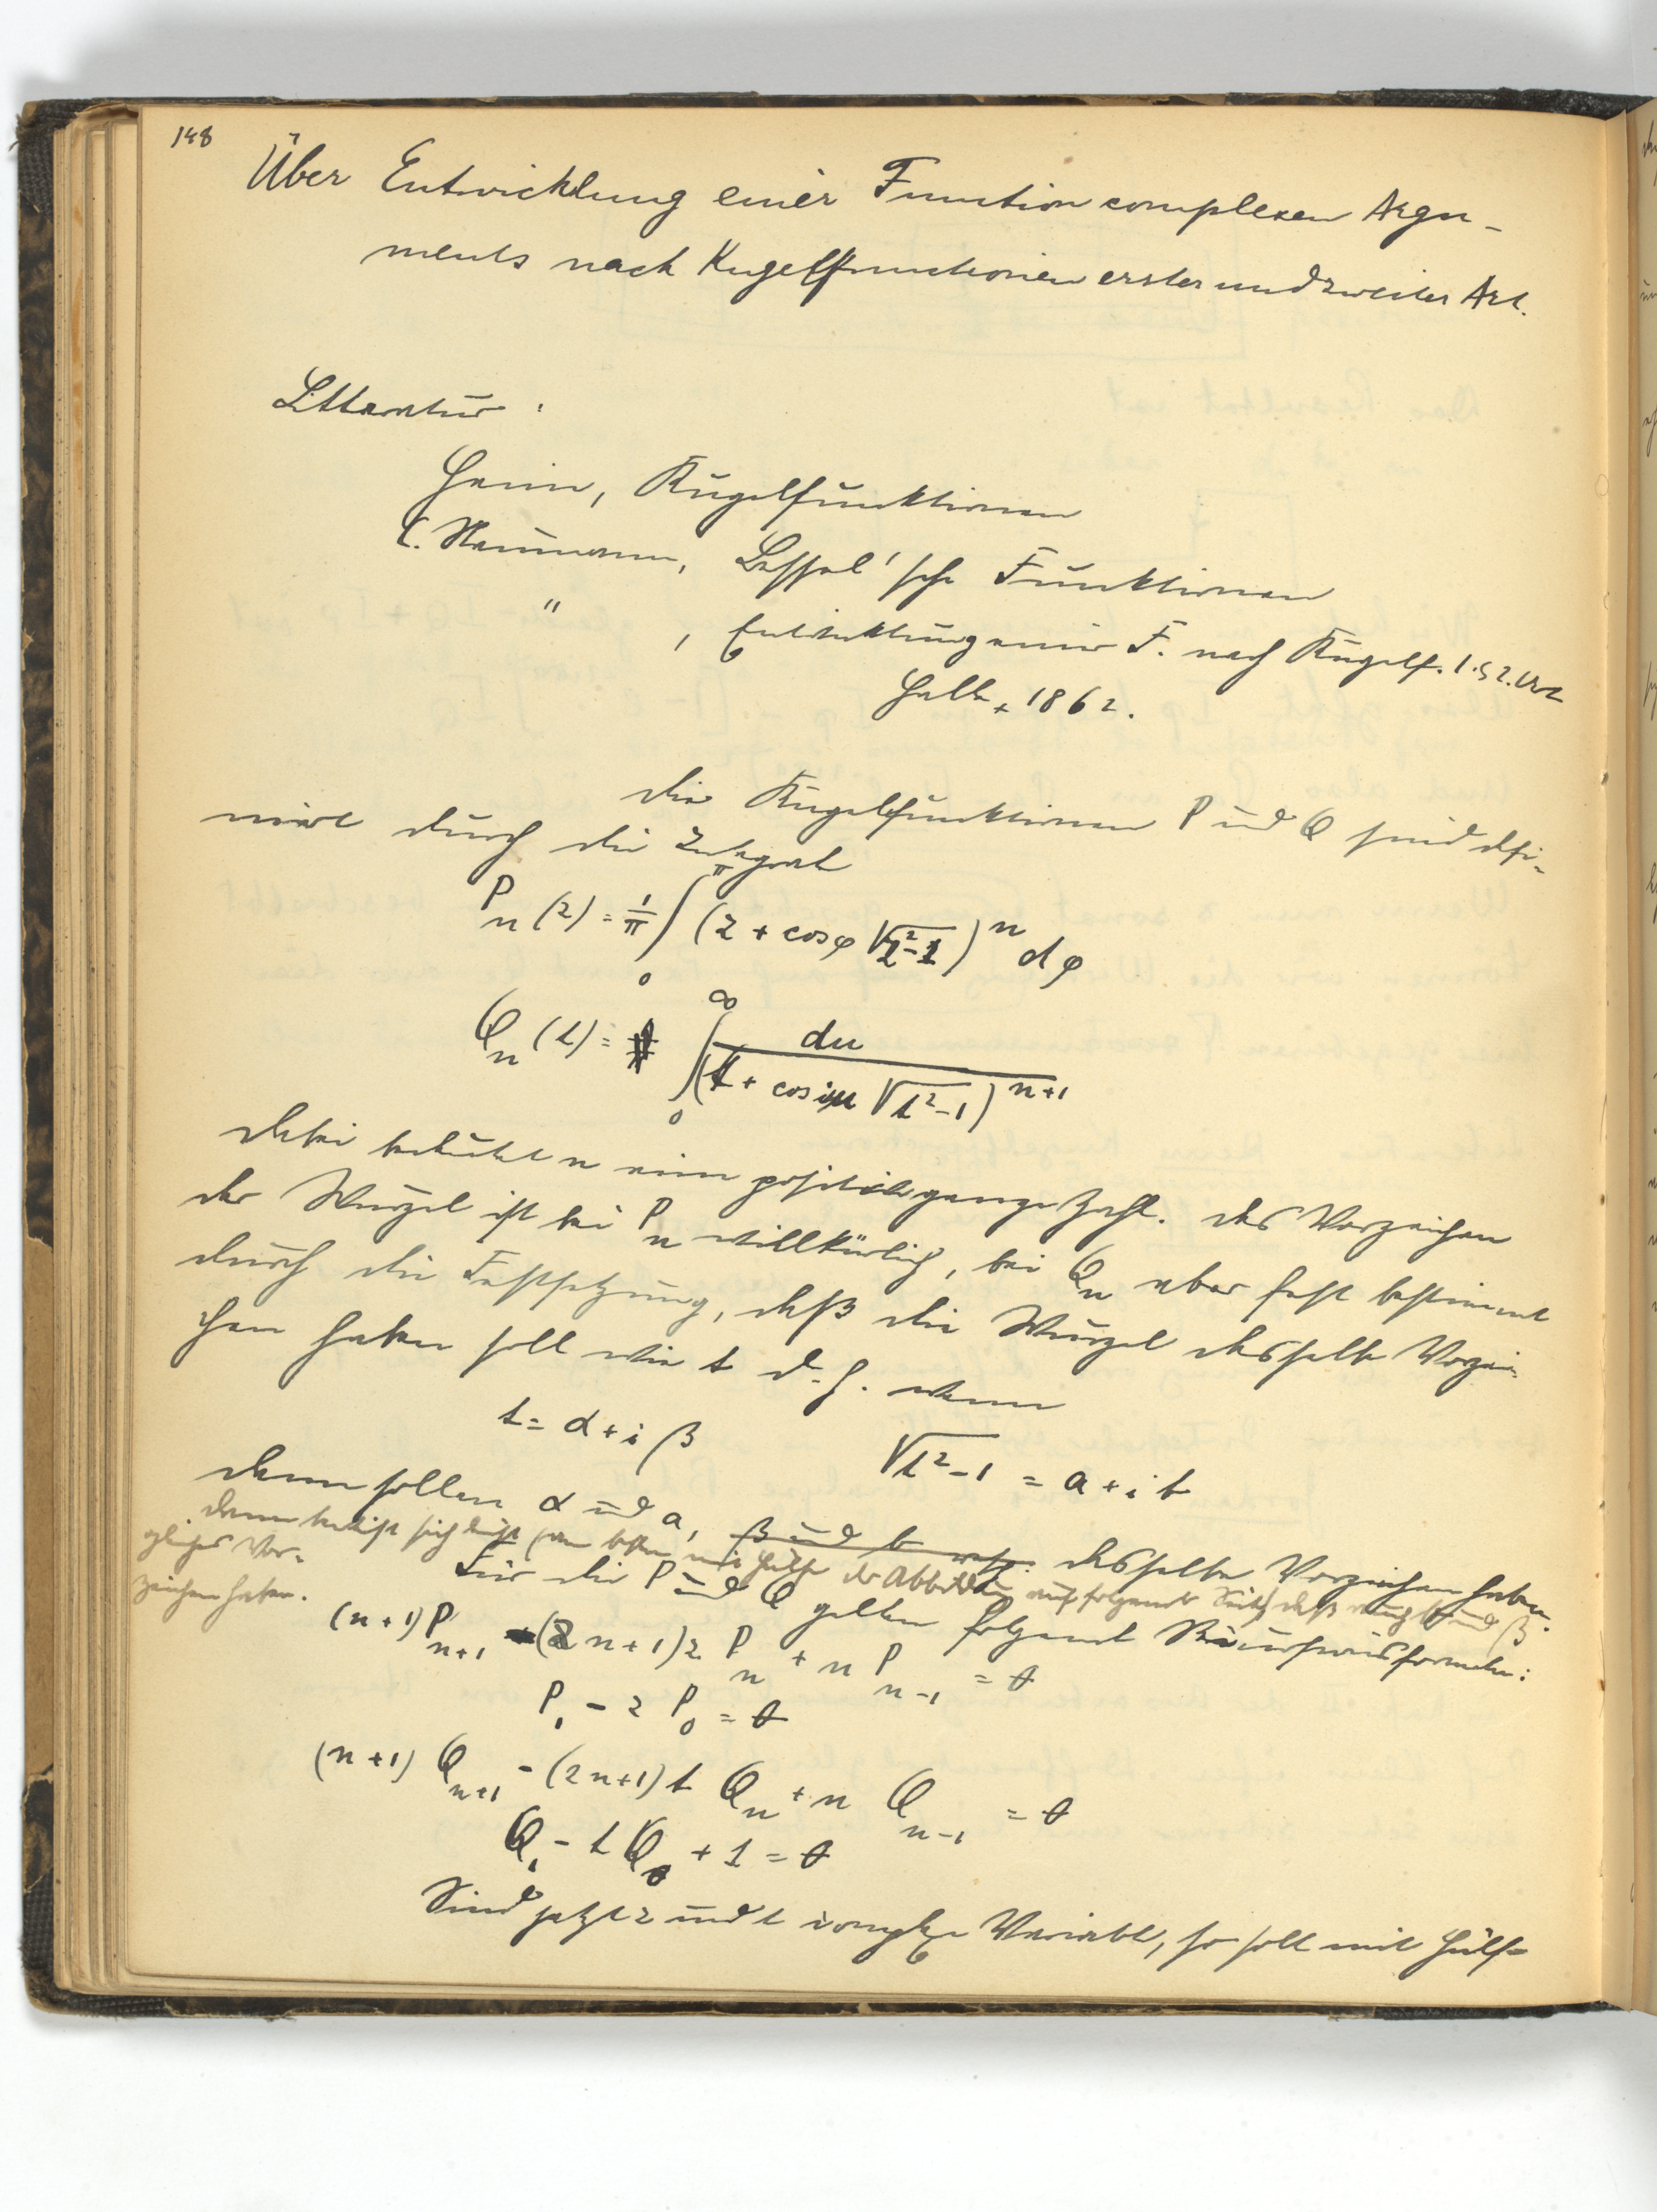 148
Über Entwicklung einer Function complexen Argu-
ments nach Kugelfunctionen erster und zweiter Art.
Litteratur:
Heine, Kugelfunktionen
C. Neumann, Bessel'sche Funktionen
" , Entwicklung einer F. nach Kugelf. 1. & 2. Art
Halle, 1862.
Die Kugelfunktionen P und Q sind defi-
niert durch die Integrale
P_n(z) = 1/π ∫_0^π (z + cos φ √(z²-1))^n dφ
Q_n(t) = ∫_0^∞ du / (t + cos iu √(t²-1))^{n+1}
Dabei bedeutet n eine positive ganze Zahl. Das Vorzeichen
der Wurzel ist bei P_n willkürlich, bei Q_n aber fest bestimmt
durch die Festsetzung, daß die Wurzel dasselbe Vorzei-
chen haben soll wie t d.h. wenn
t = α + iβ √(t²-1) = a + ib
dann sollen α und a, β und b resp. dasselbe Vorzeichen haben.
Dann beweist sich leicht (am besten mit Hülfe der Abbildung auf folgender Seite) daß auch b und β
gleiches Vor-
zeichen haben.
Für die P und Q gelten folgende Recursionsformeln:
(n+1) P_{n+1} - (2n+1) z P_n + n P_{n-1} = 0
P_1 - z P_0 = 0
(n+1) Q_{n+1} - (2n+1) t Q_n + n Q_{n-1} = 0
Q_1 - t Q_0 + 1 = 0
Sind jetzt z und t complexe Variable, so soll mit Hülfe